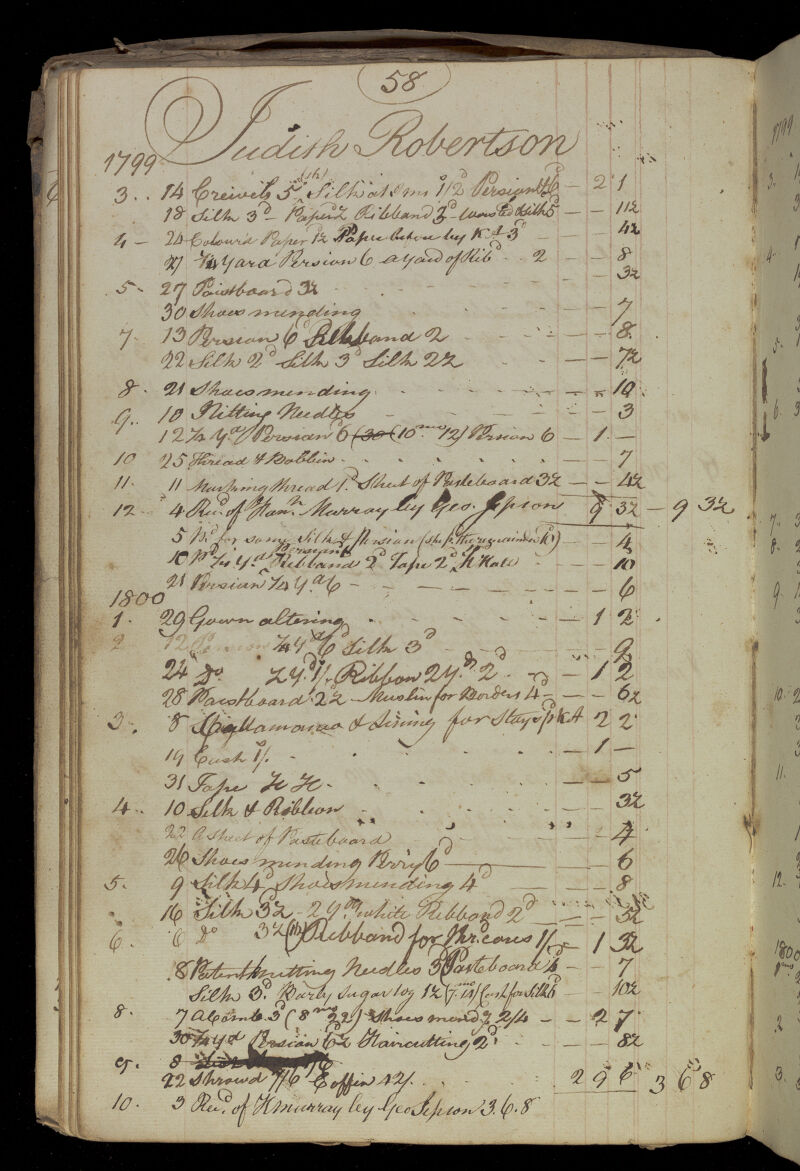 58
Judith Robertson
1799
3.. 14 Creivels 5d Silk at 8 mo 1/2d Persian 4/6d — 2 1
18 Silk 3d — Paper 2 Ribband 3d — worsted & Silk 5d — — 11½
4 — 24 Colour'd Paper 1½ Paper before by K A 3d — — 4½
27 ¼ Yard Persion 6 a yard of Rib'd 2 — — 8
5 - 27 Paistboard 3½ — — 3½
30 Shoes mending — — 7
7. 13 Persian 6d Silk band 2 — — 8
22 Silk 2d Silk 3d Silk 2½ — — 7½
8. 21 Shoes mending — — 10
9.. 10 Nitting Needles — — 3
12 ¼ yd Persian 6 (10 mo 12) Persion 6 — 1. —
10 25 Thread & Bobbin — — 7
11. 11 Marking thread 1d Sheet of Pasteboard 3½ — — 4½
12 4 Recd of Han.h Murray by Geo. Jepson 9 3½ — 9 3½
5 Pd for some Silk & Persian — 4
10 Pd ¼ yd Persian 6 Ribband 2d Tape 2d — 10
21 Persian ¼ yd 6 — — 6
1800
1. 29 Gown altering — 1 2
2 12 Persion ¼ yd 6d Silk 3d — 9
24 Do ½ yd 1/- Ribbon 2 yds 2d — 1 2
28 Paistboard 2½ Muslin for Borders 4d — — 6½
3. 8 Callamanco & Lining for Stays pr K A 2 2
19 Cash 1/. — 1 —
31 Tape — 5
4.. 10 Silk & Ribbon — — 3½
22 a Sheet of Pasteboard — 4
26 Shoes mending Perry 6d — — 6
5. 9 Silk 4d Shoes mending 4d — — 8
16 Silk 3½ — 2 yds white Ribband 2d — — 5½
6. 6 Do 3½ Ribband for 1/- — 1 3½
8 Patent knitting Needles 3d Pasteboard 4 — 7
Silk 3d. Barly Sugar 1½ Cash for Silk 6d — — 10½
8. 7 a Comb 3d (8 mo 22) Shoes mend'g 2/4 — — 2 7
30 ¼ yd Persian 6½ Haircutting 2d — — 8½
9. 8
22 Shroud 7/6 Coffin 42/. 2 9 6 3 6 8
10. 3 Recd. of H Murray by Geo Jepson 3.6.8